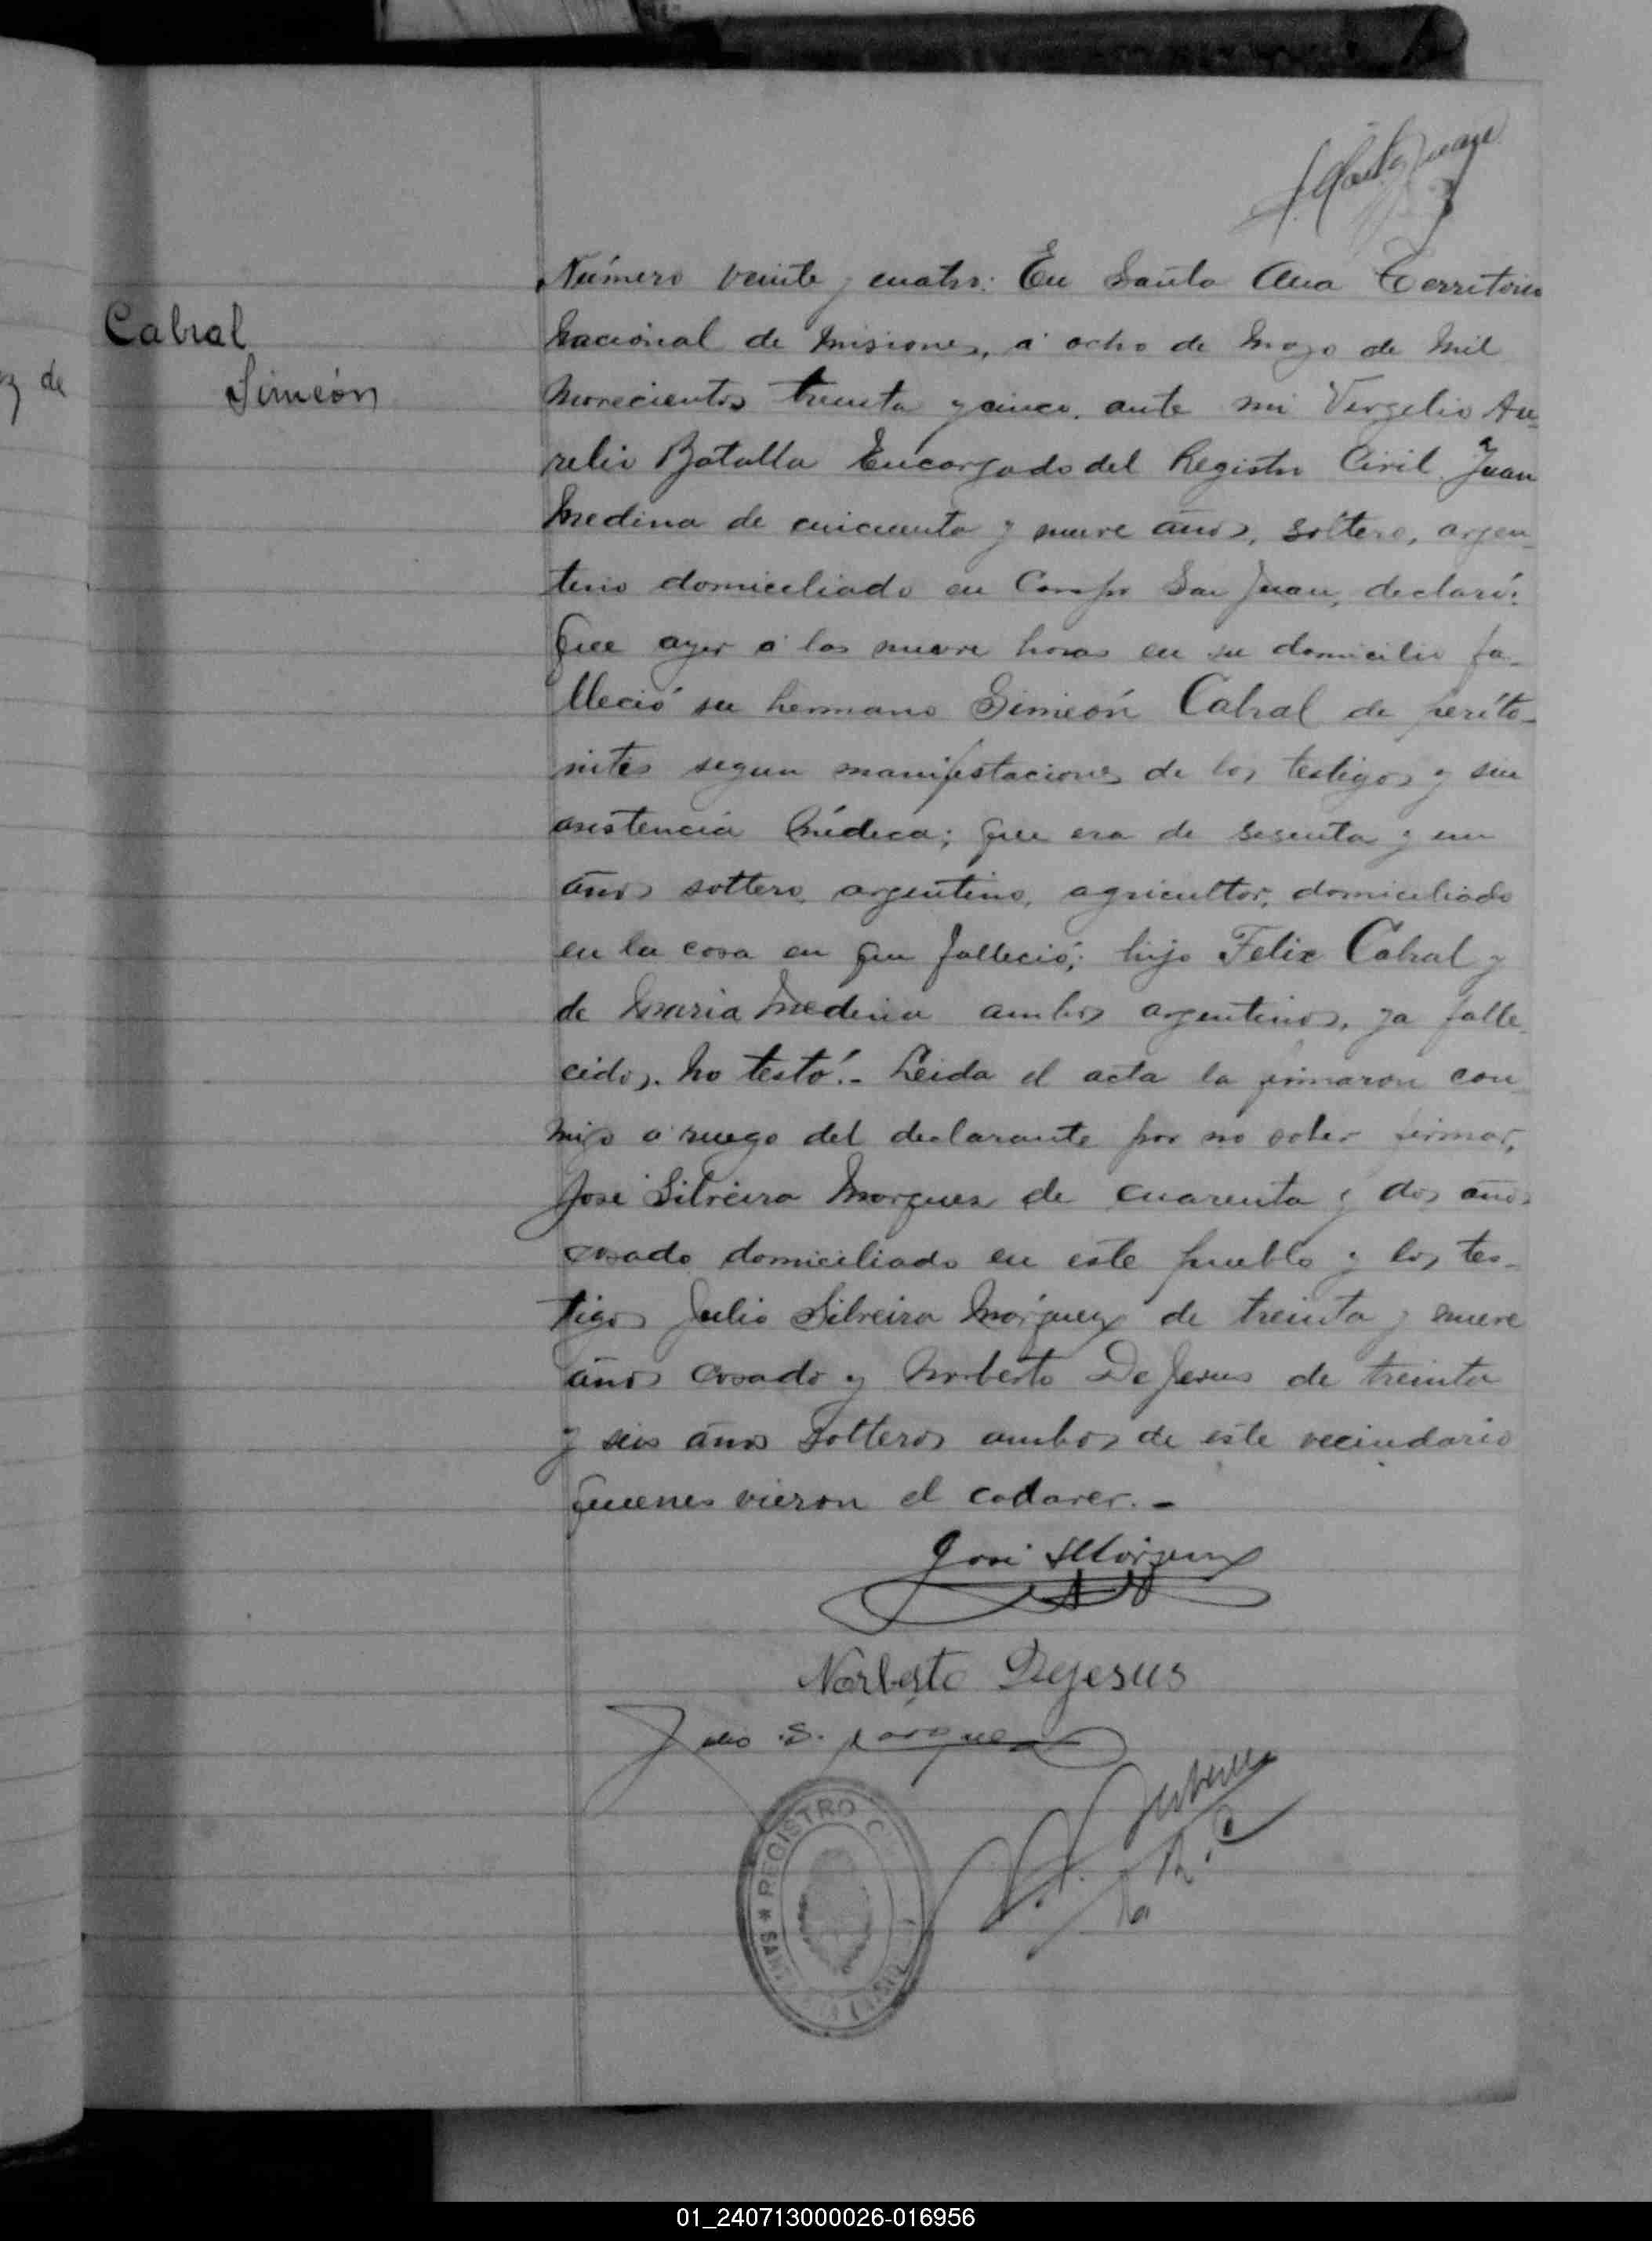 Cabral
Simeón
z de
Número veinte y cuatro: En Santa Ana Territorio
Nacional de Misiones, a ocho de Mayo de Mil
Novecientos treinta y cinco, ante mi Vergelio Au-
relio Batalla Encargado del Registro Civil, Juan
Medina de cincuenta y nueve años, soltero, argen-
tino domiciliado en Campo San Juan, declaró:
Que ayer a las nueve horas en su domicilio fa-
lleció su hermano Simeón Cabral de perito-
nites segun manifestaciones de los testigos y sin
asistencia Médica; que era de sesenta y un
años soltero, argentino, agricultor, domiciliado
en la casa en que falleció; hijo Felix Cabral y
de Maria Medina ambos argentinos, ya falle-
cidos. No testó.- Leida el acta la firmaron con-
migo a ruego del declarante por no saber firmar,
José Silveira Marquez de cuarenta y dos años
casado domiciliado en este pueblo y los tes-
tigos Julio Silveira Márquez de treinta y nueve
años casado y Norberto De Jesus de treinta
y seis años solteros ambos de este vecindario
quienes vieron el cadaver.-
José S Márquez
Norberto Dejesus
Julio .S. Marquez
REGISTRO
01_240713000026-016956